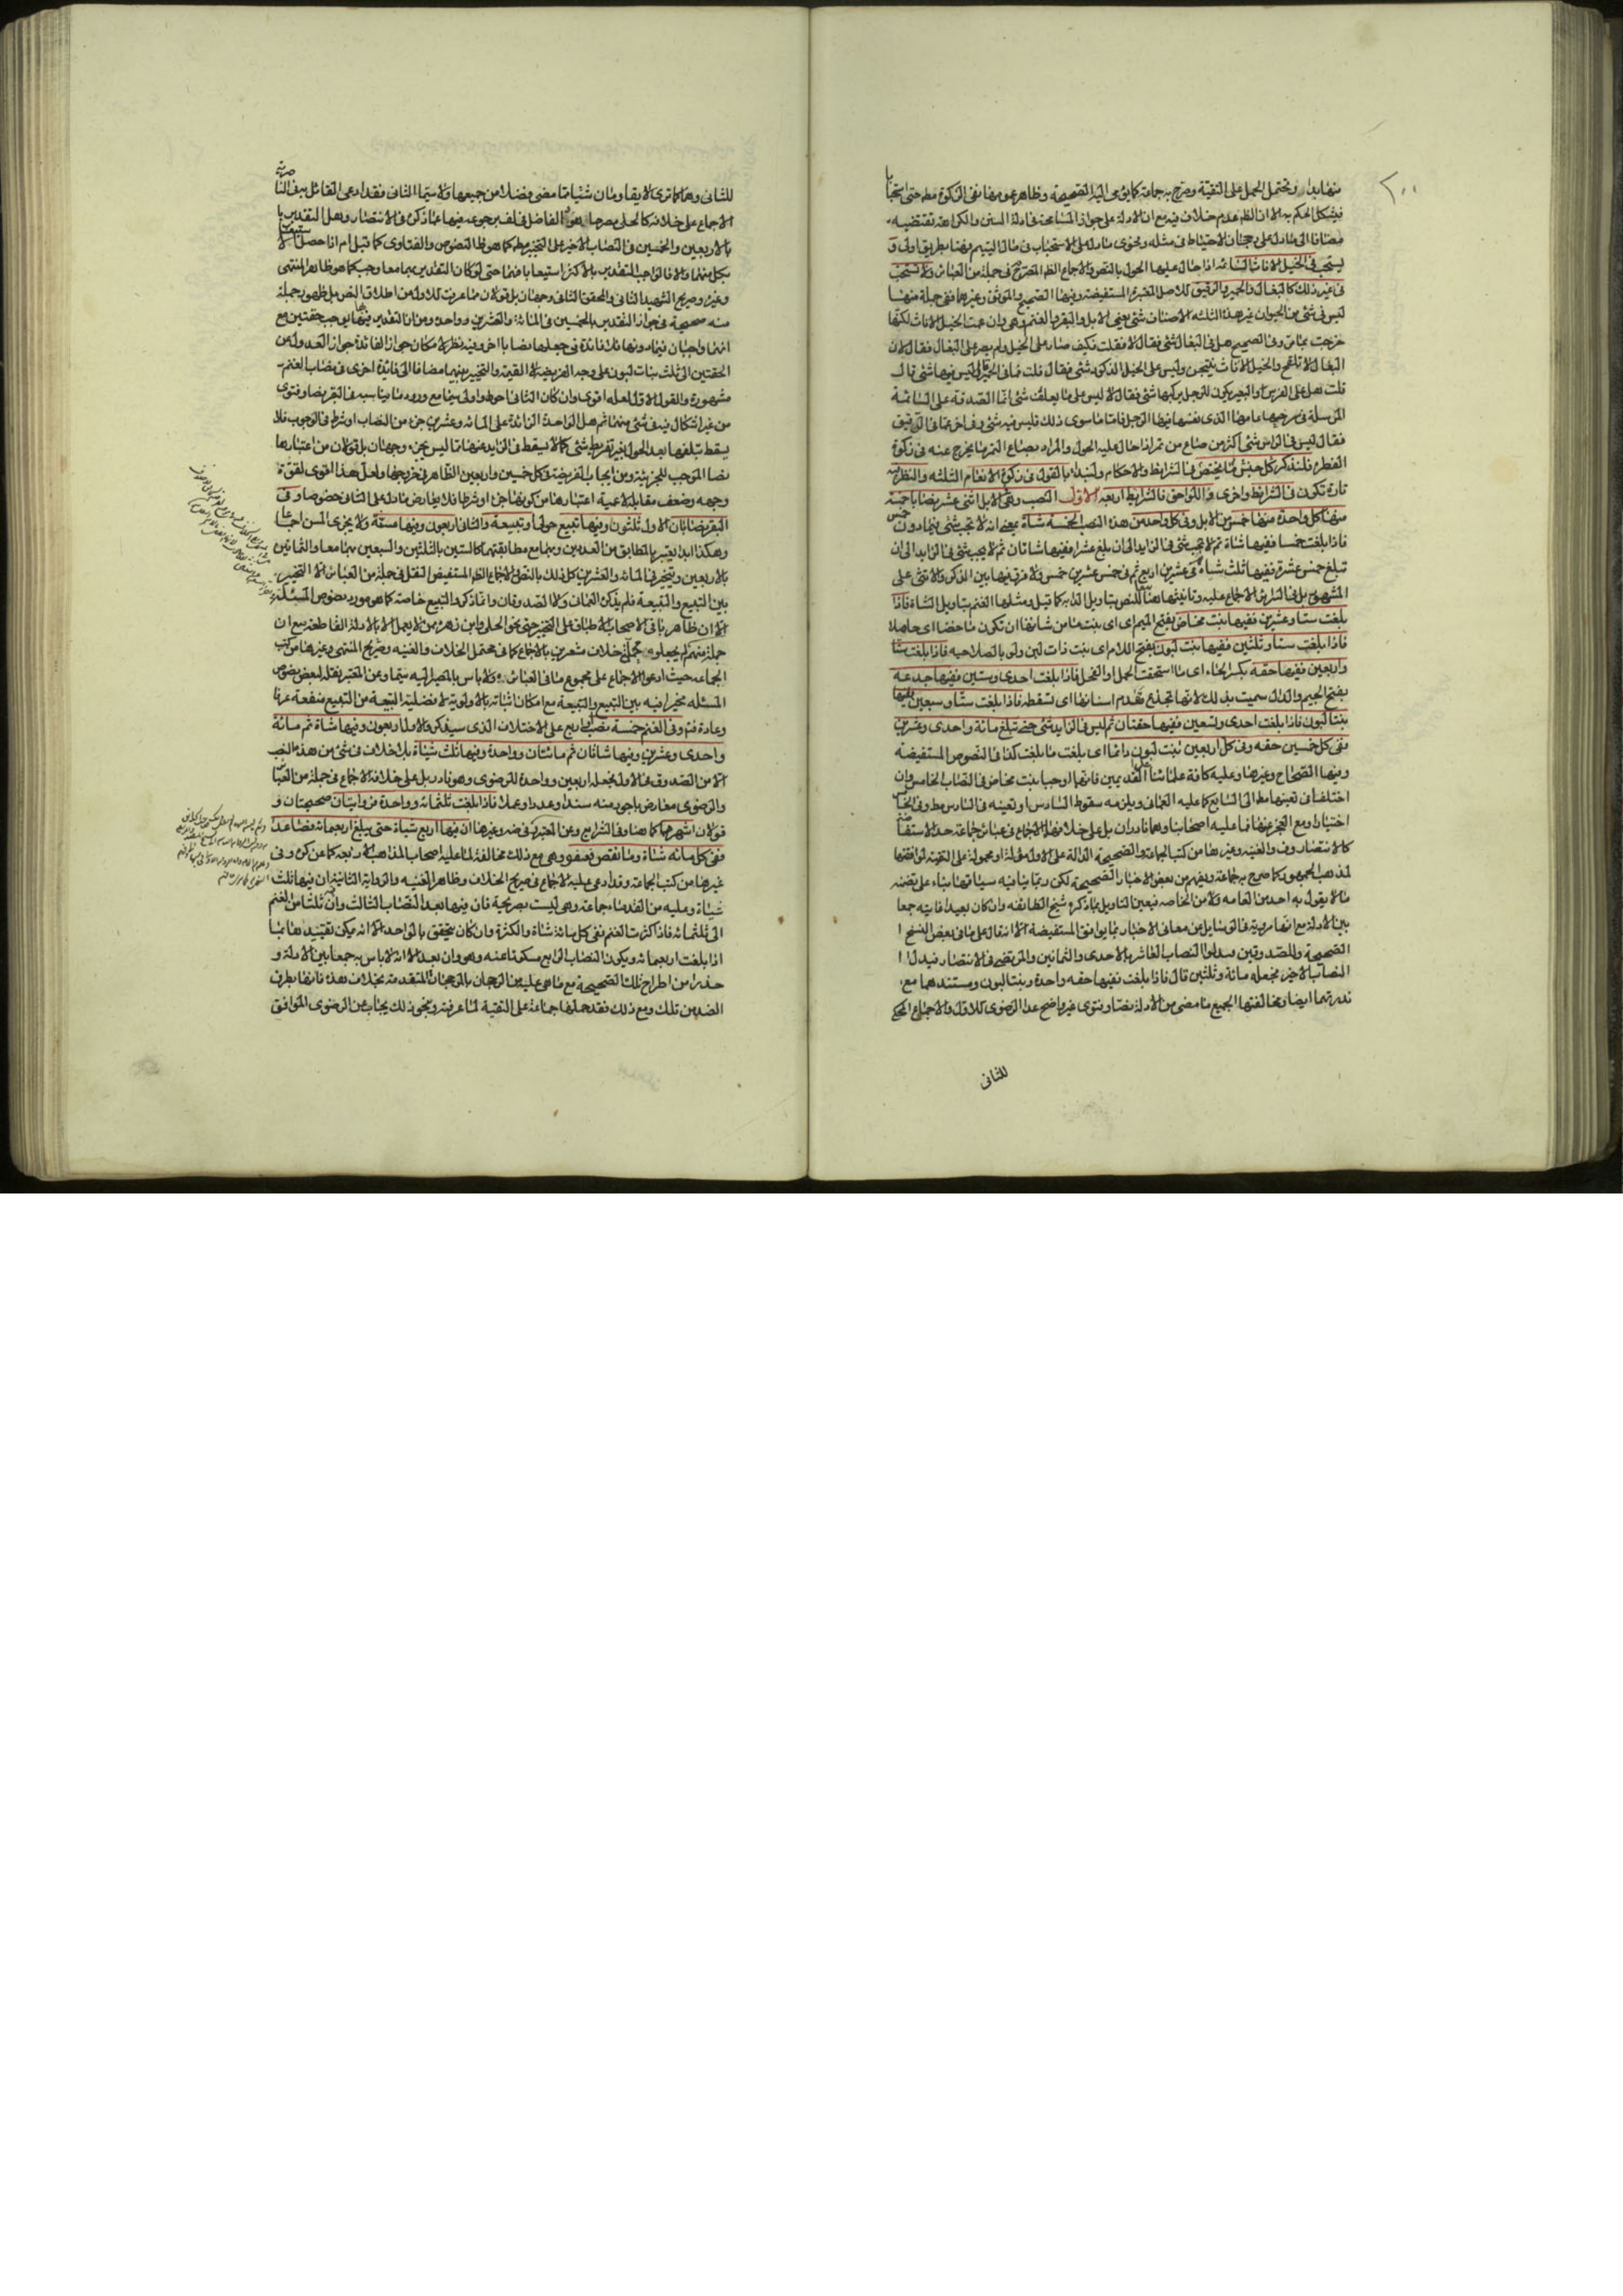 ٢٠٠
منها بدار ويحتمل الحمل على التقية وصرح به جماعة كما يومى اليه الصحيحة وظاهر عموم هنا نفى الزكوة مط حتى استحبابا
فيشكل الحكم به الا ان الظم عدم خلاف فيه مع ان الادلة على جواز المسامحة فى ادلة السنن والكراهة تقتضيه
مضافا الى ما دل على رجحان الاحتياط فى مثله وفحوى ما دل على الاستحباب فى مال اليتيم فهنا بطريق اولى و
يستحب فى الخيل الاناث السائمة اذا حال عليها الحول بالنص والاجماع الظم المصرح فى جملة من العباير ولا يستحب
فى غير ذلك كالبغال والحمير والرقيق للاصل المعتبرة المستفيضة وفيها الصحيح والموثق وغيرهما ففى جملة منها
ليس فى شئ من الحيوان غير هذه الثلثة الاصناف شئ يعنى الابل والبقر والغنم وهى وان عمت الخيل الاناث لكنها
خرجت بما مر وفى الصحيح هل فى البغال شئ فقال لا فقلت فكيف صار على الخيل ولم يصر على البغال فقال لان
البغال لا تلقح والخيل الاناث ينتجن وليس على الخيل الذكور شئ فقال قلت فما فى الحمير قال ليس فيها شئ قال
قلت هل على الفرس او البعير يكون للرجل يركبها شئ فقال لا ليس على ما يعلف شئ انما الصدقة على السائمة
المرسلة فى مرجها عامها الذى يقتنيها فيها الرجل فاما ما سوى ذلك فليس فيه شئ وفى اخر عما فى الرقيق
فقال ليس فى الراس شئ اكثر من صاع من تمر اذا حال عليه الحول والمراد بصاع التمر ما يخرج عنه فى زكوة
الفطرة فلنذكر كل جنس مما يختص فيه الشرايط والاحكام ولنبدأ بالقول فى زكوة الانعام الثلثة والنظر فيه
تارة تكون فى الشرايط واخرى فى اللواحق فالشرايط اربعة الاول النصب وهى فى الابل اثنى عشر نصابا خمسة
منها كل واحدة منها خمس من الابل وفى كل واحد من هذه النصب الخمسة شاة بمعنى انه لا تجب شئ فيما دون خمس
فاذا بلغت خمسا ففيها شاة ثم لا يجب شئ فى الزايد الى ان يبلغ عشرا ففيها شاتان ثم لا يجب شئ فى الزايد الى ان
تبلغ خمس عشرة ففيها ثلث شياه ثم فى عشرين اربع ثم فى خمس وعشرين خمس ولا فرق فيها بين الذكر والانثى على
المشهور بل فى السراير الاجماع عليه وتانيثها هنا للنص بتاويل الدابة كما قيل ومثلها الغنم بتاويل الشاة فاذا
بلغت ستا وعشرين ففيها بنت مخاض بفتح الميم اى اى بنت ما من شانها ان تكون ماخضا اى حاملا
فاذا بلغت ستا وثلثين ففيها بنت لبون بفتح اللام اى بنت ذات لبن ولو بالصلاحية فاذا بلغت ستا
واربعين ففيها حقه بكسر الحاء اى ما استحقت الحمل او الفحل فاذا بلغت احدى وستين ففيها جدعة
بفتح الجيم والدال سميت بذلك لانها تجذع مقدم اسنانها اى تسقطه فاذا بلغت ستا وسبعين ففيها
بنتا لبون فاذا بلغت احدى وتسعين ففيها حقتان ثم ليس فى الزايد شئ حتى تبلغ مائة واحدى وعشرين
ففى كل خمسين حقه وفى كل اربعين بنت لبون دائما اى بلغت ما بلغت كذا فى النصوص المستفيضة
وفيها الصحاح وغيرها وعليه كافة علمائنا عدا القديمين فانهما اوجبا بنت مخاض فى النصاب الخامس وان
اختلفا فى تعينها مط الى السابع كما عليه العمانى ويلزمه سقوط السادس او تعينه فى السادس مط وفى الخامس
اختيارا ومع العجز عنها فما عليه اصحابنا وهما نادران بل على خلافهما الاجماع فى عباير جماعة حد الاستفاضة
كالانتصار وف والغنيه وغيرها من كتب الجماعة والصحيحة الدالة على الاول مأولة او محمولة على التقية لموافقتها
لمذهب الجمهور كما صرح به جماعة ويفهم من بعض الاخبار الصحيحة لكن ربما ينافيه سياقها بناء على تضمنه
ما لا يقول به احد من العامه ولا من الخاصه فيعين التاويل بما ذكره شيخ الطائفه وان كان بعيدا فانيته جمعا
بين الادلة مع انها مروية فى الوسايل عن معانى الاخبار بما يوافق المستفيضة الا انه قال على ما فى بعض النسخ
الصحيحة وللصدوقين مبدلوا النصاب العاشر بالاحدى والثمانين والمرتضى فى الانتصار فيبدل
النصاب الاخير بجعله مائة وثلثين قال فاذا بلغت ففيها حقه واحدة وبنتا لبون ومستندهما مع
ندرتهما ايضا ومخالفتهما الجميع ما مضى من الادلة نصا وفتوى غير واضح عدا الرضوى للاول والاجماع المحكى
للثانى
للثانى وهما كما ترى لا يقاومان شيئا مما مضى وفضلا من جميعها ولا سيما الثانى فقد ادعى القائل به فى الناصرية
الاجماع على خلافه كالحلى مصرحا هو والفاضل فى لف برجوعه فيها عما ذكره فى الانتصار وهل التقدير
بالاربعين والخمسين فى النصاب الاخير على التخيير مط كما هو ظ النصوص والفتاوى كما قيل ام اذا حصل الاستيعاب
بكل منهما والا فالواجب التقدير بالاكثر استيعابا منهما حتى لو كان التقدير بهما معا وجب كما هو ظاهر المنتهى
وغيره وصريح الشهيد الثانى والمحقق الثانى وجهان بل قولان مما عرفت للاول من اطلاق النص بل ظهور جملة
منه صحيحة فى جواز التقدير بالخمسين فى المائة والعشرين وواحدة ومن ان التقدير فيها يوجب حقتين مع
انهما واجبان فيما دونها فلا فائدة فى جعلها نصابا اخر وفيه نظر لامكان جواز الفائدة جواز العدول من
الحقتين الى ثلث بنات لبون على وجه الفريضة لا القيمة والتخيير بينهما مضافا الى فائدة اخرى فى نصاب الغنم
مشهورة والقول الاول لعله اقوى وان كان الثانى احوط واولى سيما مع وروده ما يناسبه فى البقر نصا وفتوى
من غير اشكال فيه فى شئ منهما ثم هل الواحدة الزائدة على المائة وعشرين جزء من النصاب او شرط فى الوجوب فلا
يسقط بتلفها بعد الحول بغير تفريط شئ كما لا يسقط فى الزايد عنها مما ليس بجزء وجهان بل قولان من اعتبارها
نصا الموجب للجزئية ومن ايجاب الفريضة فى كل خمسين واربعين الظاهر فى خروجها ولعل هذا اقوى لقوة
وجهه وضعف مقابله لاعمية اعتبارها من كونها جزء او شرطا فلا يعارض ما دل على الثانى خصوصا وفى
البقر نصابان الاول ثلثون وفيها تبيع حولى او تبيعة والثانى اربعون وفيها مسنة ولا يجزى المسن اجماعا
وهكذا ابدا يعتبر المطابق من العددين وبهما مع مطابقتهما كالستين بالثلثين والسبعين بهما معا والثمانين
بالاربعين ويتخير فى المائة والعشرين كل ذلك بالنص والاجماع الظم المستفيض النقل فى جملة من العباير الا التخيير
بين التبيع والتبيعة فلم يذكره العمانى ولا الصدوقان وانما ذكروا التبيع خاصة كما هو مورد نصوص المسئلة
الا ان ظاهر باقى الاصحاب الاطباق على التخيير حتى نحو الحلى وابن زهره ممن لا يعمل الا بالادلة القاطعة مع ان
جملة منهم لم يجعلوه محل خلاف مشعرين بالاجماع كما فى محتمل الخلاف والغنيه وصريح المنتهى وغيرها من كتب
الجماعة حيث ادعوا الاجماع على مجموع ما فى العباير ولا باس بالمصير اليه سيما وعن المعتبر نقله لبعض نصوص
المسئله مخيرا فيه بين التبيع والتبيعة مع امكان اثباته بالاولوية لافضلية التبيعة من التبيع منفعة عرفا
وعادة فتم وفى الغنم خمسة نصب او اربع على الاختلاف الذى سيذكر والاول اربعون وفيها شاة ثم مائة
واحدى وعشرين وفيها شاتان ثم مائتان وواحدة وفيها ثلث شياه بلا خلاف فى شئ من هذه النصب
الا من الصدوق فى الاول بجعله اربعين وواحدة للرضوى وهو نادر بل على خلافه الاجماع فى جملة من العباير
والرضوى معارض باجود منه سندا وعددا وعملا فاذا بلغت ثلثمائة وواحدة فروايتان صحيحتان و
قولان اشهرهما كما هنا وفى الشرايع وعن المعتبر وغيرها ان فيها اربع شياه حتى يبلغ اربعمائة فصاعدا
ففى كل مائه شاة وما نقص فعفو وهى مع ذلك مخالفة لما عليه اصحاب المذاهب الاربعة كما عن كره وفى
غيرها من كتب الجماعة وقد ادعى عليه الاجماع فى صريح الخلاف وظاهر الغنيه والرواية الثانية ان فيها ثلث
شياه وعليه من القدماء جماعة وهى ليست بصريحة فان فيها بعد النصاب الثالث وان ثلثا من الغنم
الى ثلثمائه فاذا كثرت الغنم ففى كل مائة شاة والكثرة وان كان يتحقق بالواحد الا انه يمكن تقييدها بما
اذا بلغت اربعمائه ويكون النصاب الرابع مسكوتا عنه وهو وان بعد الا انه لا باس به جمعا بين الادلة و
حذرا من اطراح تلك الصحيحة مع ما هى عليه من الرجحان بالوجهان المتقدمة بخلاف هذه فانها بطرف
الضد من تلك ومع ذلك فقد حملها جماعة على التقية لما عرفته وبنحو ذلك يجاب عن الرضوى الموافق